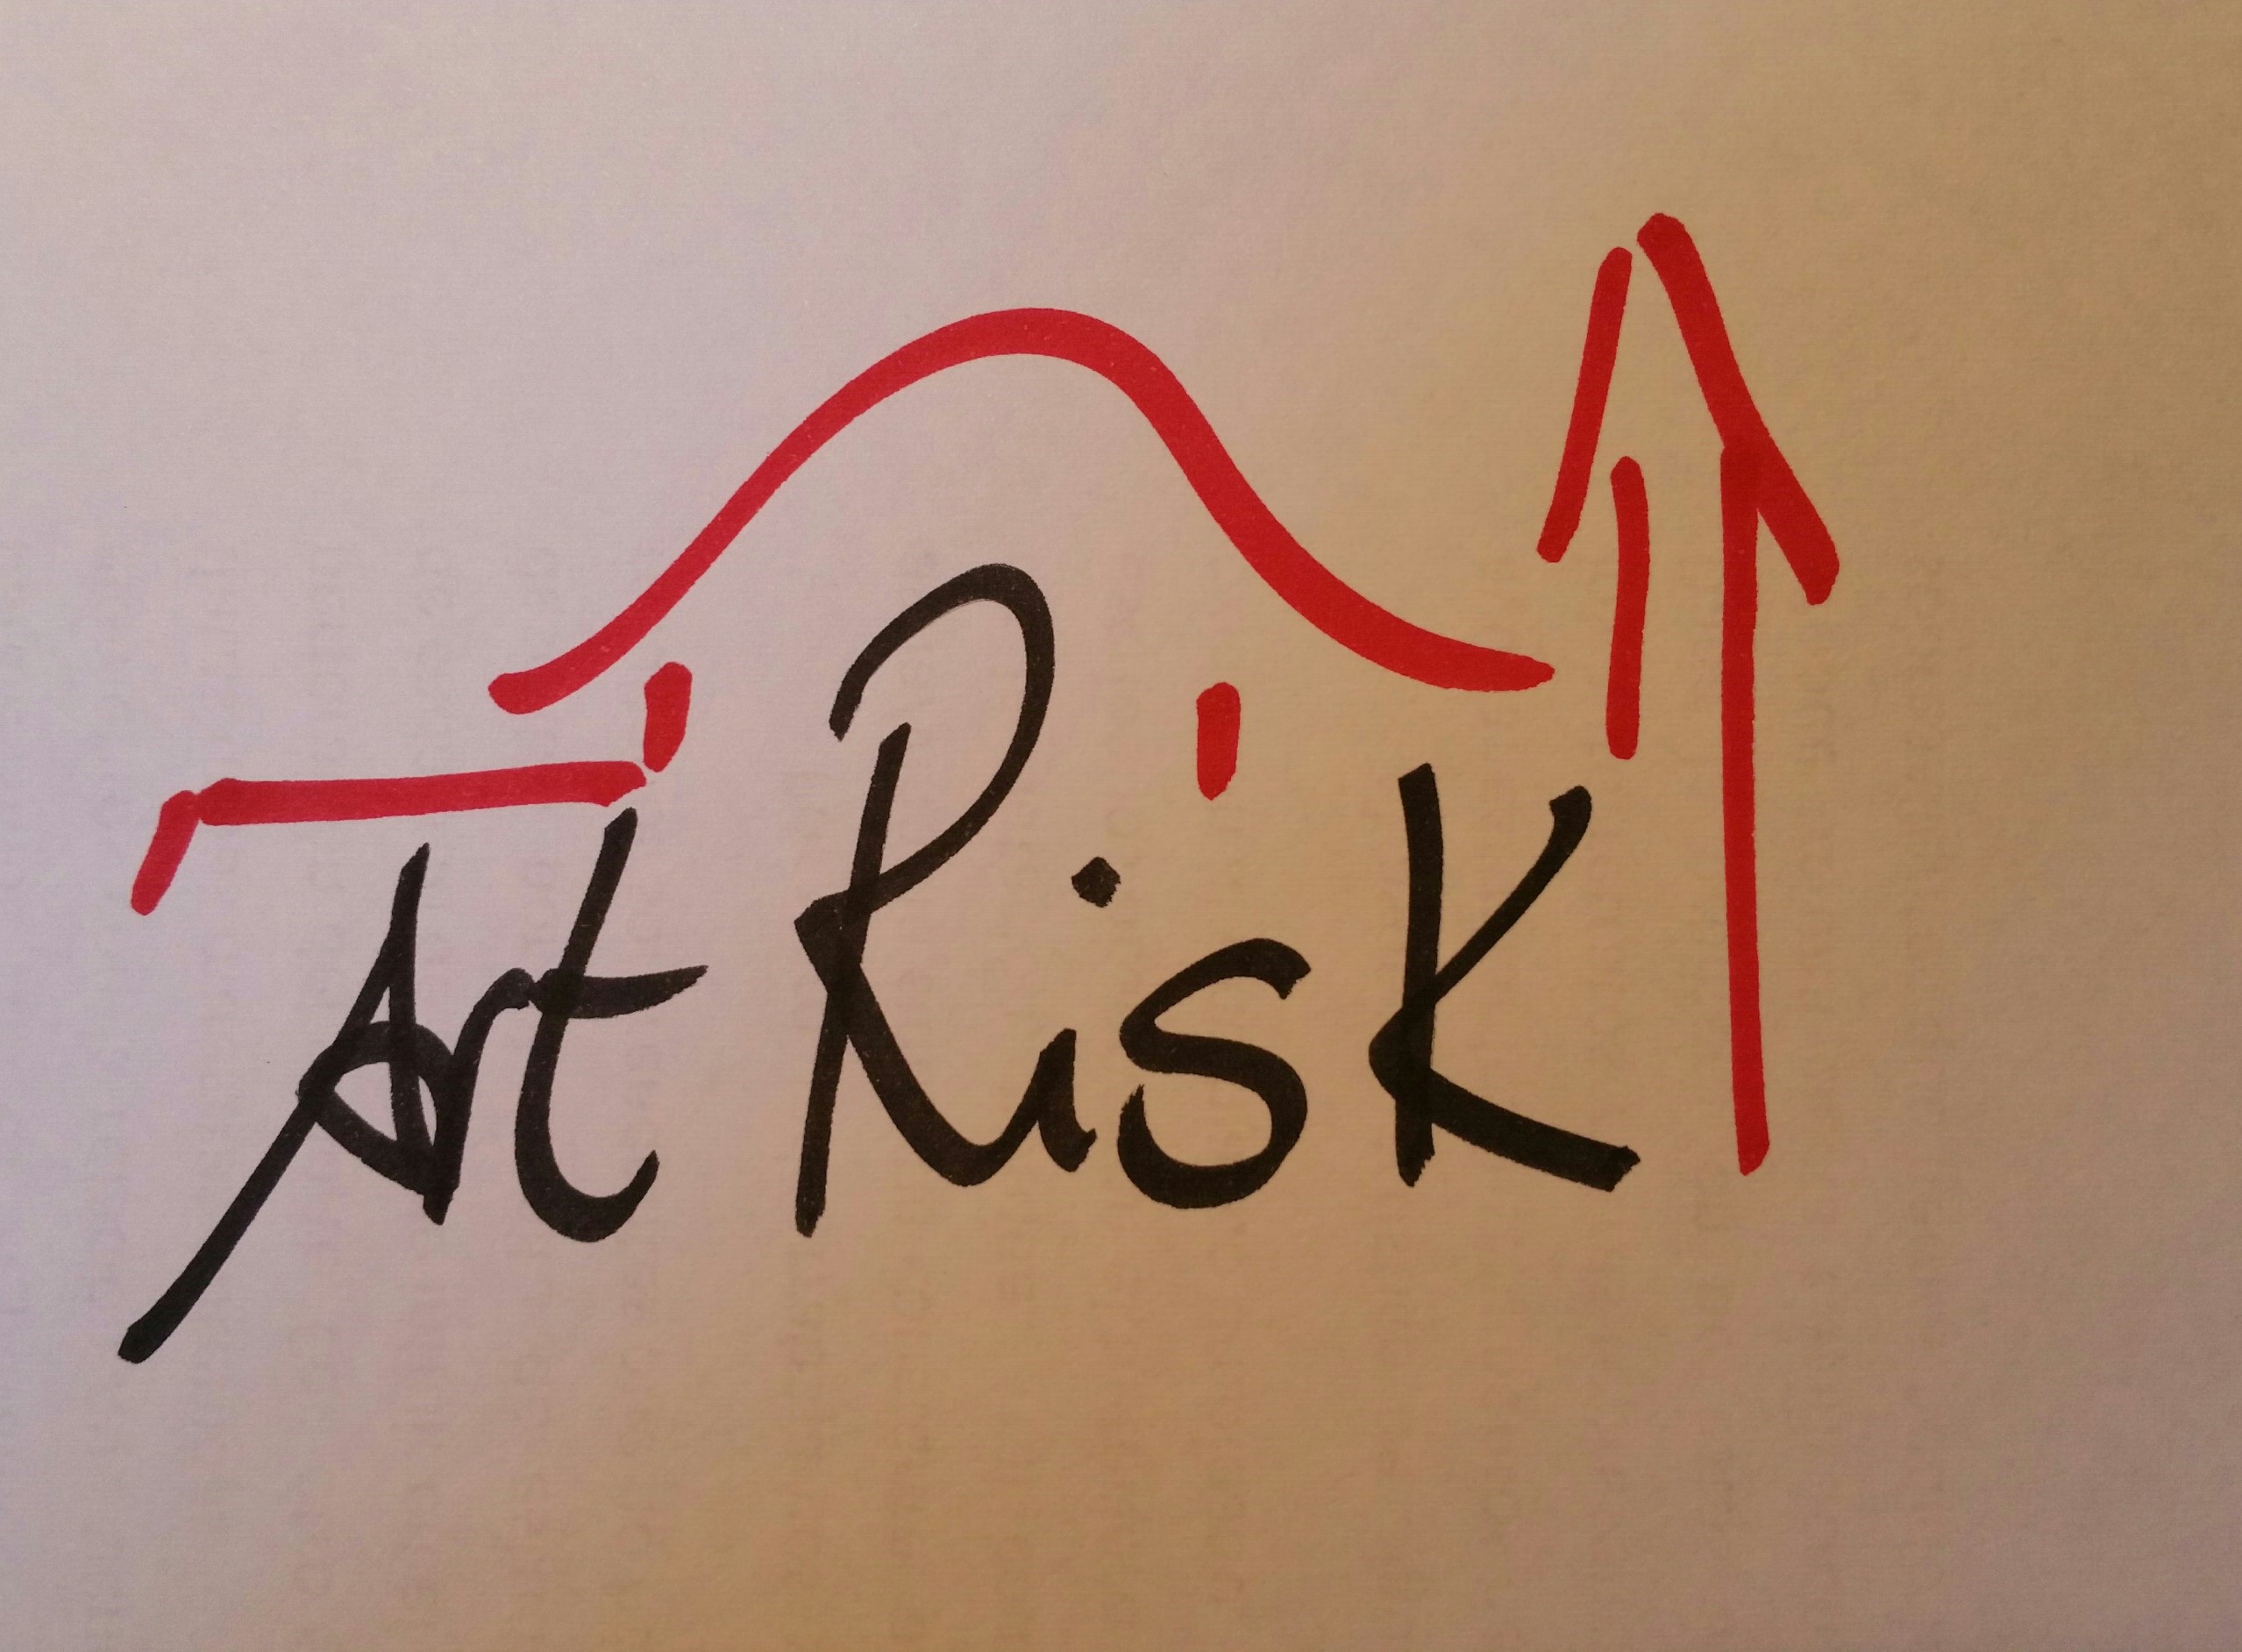 Art Risk